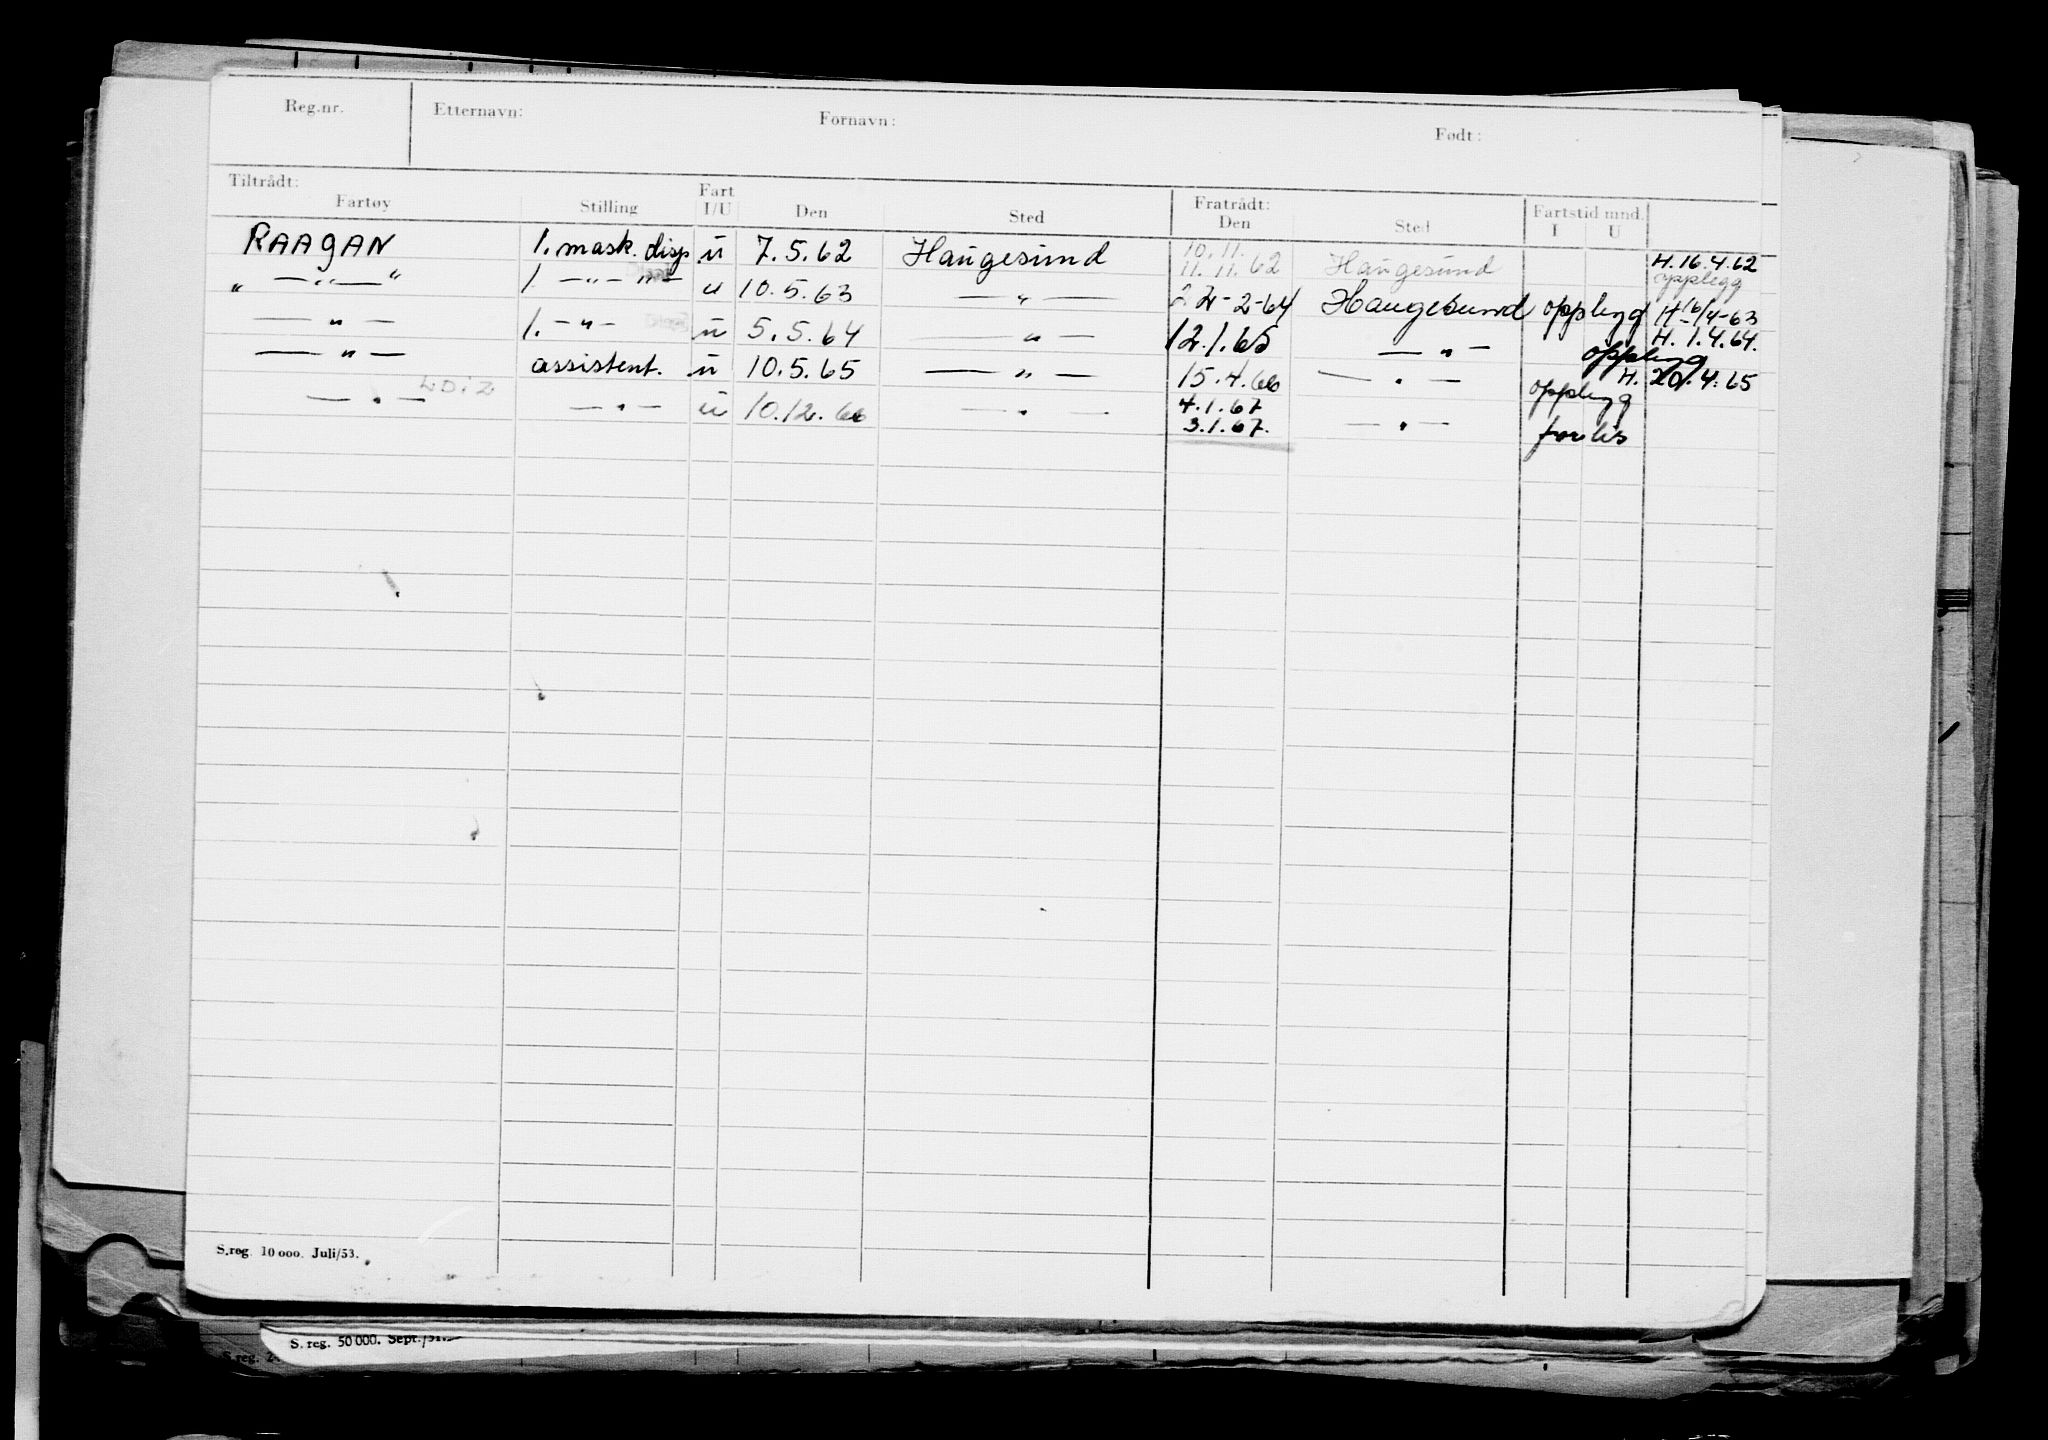 Reg.nr. Etternavn: Fornavn: Født:
Tiltrådt: Fratrådt: Fartstid mnd.
Fartøy Stilling Fart I/U Den Sted Den Sted I U
RAAGAN 1. mask. disp. u 7.5.62 Haugesund 10.11. 11.11.62 Haugesund H.16.4.62 opplegg
" — " — " 1. — " — " — u 10.5.63 — " — 2-64 Haugesund opplegg H. 16/4-63
— " — 1. — " — u 5.5.64 — " — 12.1.65 — " — opplegg H. 1.4.64.
— " — assistent. u 10.5.65 — " — 15.4.66 — " — opplegg H. 20.4.65
— " — LDIZ — " — u 10.12.66 — " — 4.1.67 3.1.67. — " — forlis
S.reg. 10 000. Juli/53.
S. reg. 50 000. Sept./51.
S.reg.